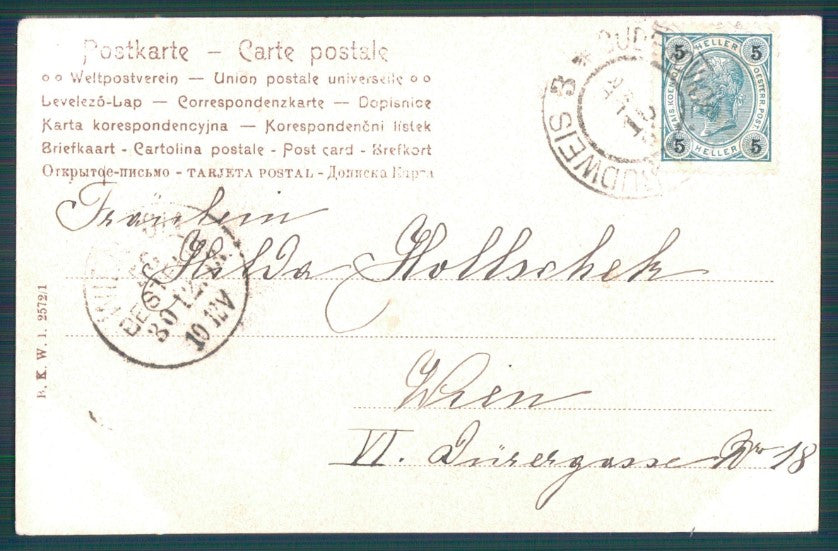 Postkarte — Carte postale
Weltpostverein — Union postale universelle
Levelező-Lap — Correspondenzkarte — Dopisnice
Karta korespondencyjna — Korespondenční lístek
Briefkaart - Cartolina postale - Post card - Brefkort
Открытое-письмо - TARJETA POSTAL - Дописна Карта
BUDWEIS 3
5 HELLER 5
OESTERR. POST
5 HELLER 5
Fräulein
Hilda Hollschek
BESTELLT
30 12
10 ½V
Wien
VI. Dürergasse Nr 18
B. K. W. I. 2572/1